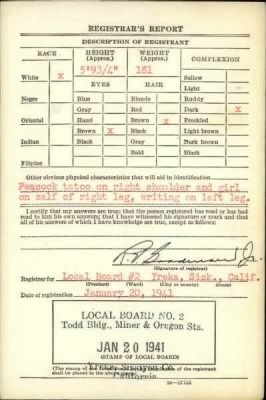 REGISTRAR'S REPORT
DESCRIPTION OF REGISTRANT
RACE HEIGHT (Approx.) WEIGHT (Approx.) COMPLEXION
5'93/4" 181
White X Sallow
EYES HAIR Light
Negro Blue Blonde Ruddy
Gray Red Dark X
Oriental Hazel Brown X Freckled
Brown X Black Light brown
Indian Black Gray Dark brown
Bald Black
Filipino
Other obvious physical characteristics that will aid in identification
Peacock tatoo on right shoulder and girl
on calf of right leg, writing on left leg.
I certify that my answers are true; that the person registered has read or has had
read to him his own answers; that I have witnessed his signature or mark and that
all of his answers of which I have knowledge are true, except as follows:
R. Jr.
(Signature of registrar)
Registrar for Local Board #2 Yreka, Sisk., Calif.
(Local Board) (City or county) (State)
Date of registration January 20, 1941
LOCAL BOARD NO. 2
Todd Bldg., Miner & Oregon Sts.
JAN 20 1941
(STAMP OF LOCAL BOARD)
Yreka, Siskiyou Co.
(The stamp of the Local Board of the registrant shall be placed in the above space.)
California